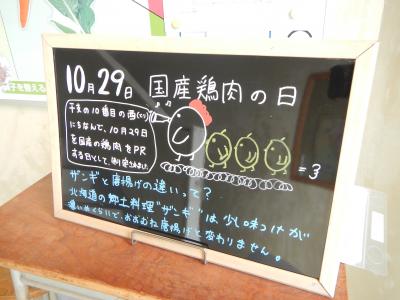 10月29日 国産鶏肉の日
干支の10番目の酉(とり)
にちなんで、10月29日
を国産の鶏肉をPR
する日として、制定されました。
=3
ザンギと唐揚げの違いって?
北海道の郷土料理"ザンギ"は少し味つけが
濃いめくらいで、おおむね唐揚げと変わりません。